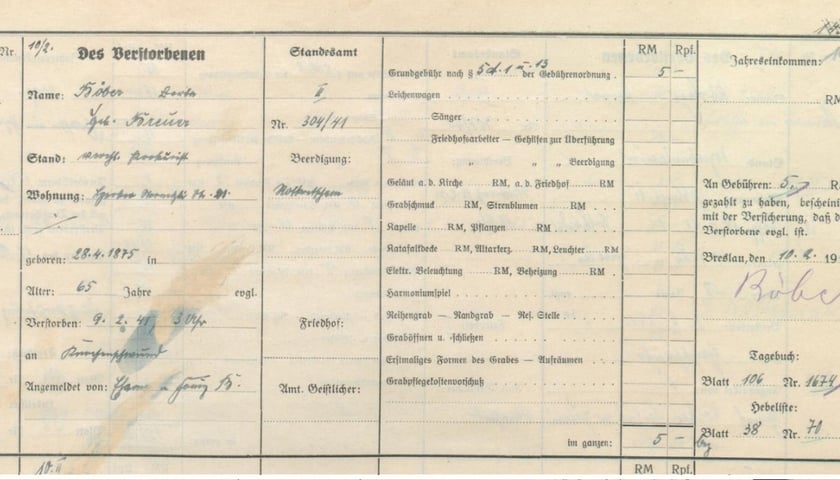 Nr.
10/2.
Des Verstorbenen
Name: Röber Berta
geb. Kreuer
Stand: verehl.
Wohnung:
geboren: 28.4.1875 in
Alter: 65 Jahre evgl.
Verstorben: 9. 2. 41 3 Uhr
an
Angemeldet von:
10.II
Standesamt
II
Nr. 304/41
Beerdigung:
Friedhof:
Amt. Geistlicher:
RM Rpf.
Grundgebühr nach § 5d.1 u. 13 der Gebührenordnung . 5 –
Leichenwagen
Sänger
Friedhofsarbeiter — Gehilfen zur Überführung
„ „ Beerdigung
Geläut a. d. Kirche RM, a. d. Friedhof RM
Grabschmuck RM, Streublumen RM
Kapelle RM, Pflanzen RM
Katafalkdecke RM, Altarkerz. RM, Leuchter RM
Elektr. Beleuchtung RM, Beheizung RM
Harmoniumspiel
Reihengrab — Randgrab — Res. Stelle
Graböffnen u. -schließen
Erstmaliges Formen des Grabes — Aufräumen
Grabpflegekostenvorschuß
im ganzen: 5 –
RM Rpf.
Jahreseinkommen:
RM
An Gebühren: 5.- R
gezahlt zu haben, bescheini
mit der Versicherung, daß d
Verstorbene evgl. ist.
Breslau, den 10. 2. 19
Röbe
Tagebuch:
Blatt 106 Nr. 1674
Hebeliste:
Blatt 38 Nr. 70